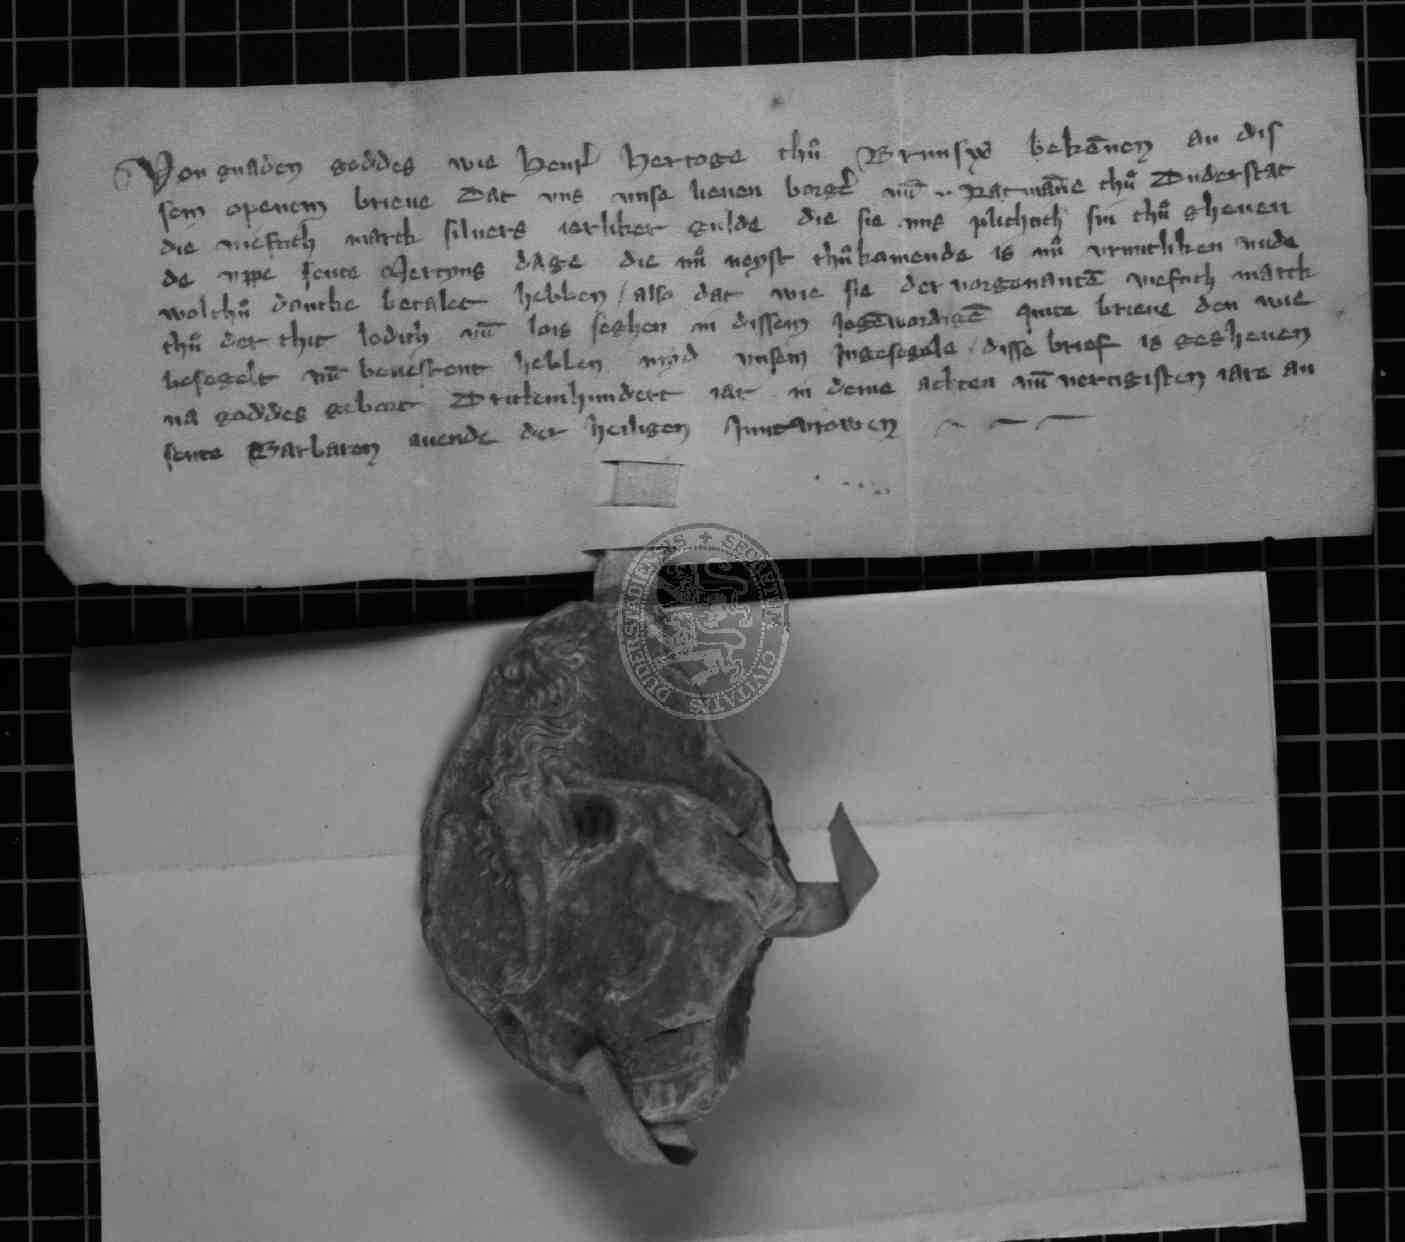 Von gnaden goddes wie Henr̄ Hertoge thů Brunsw̄ bekēnen an dis
sem openem brieue Dat vns vnse lieuen borgē vn̄ .. Ratmāne thů Duderstat
die viefhich marck siluers ierliker gulde die sie vns plichtich sin thů gheuen
de vppe sente Mertyns dage die nů neyst thůkomende is nů vruntliken vnde
wolthů dancke betalet hebben / also dat wie sie der vorgenantē viefhich marck
thů der thit ledich vn̄ lois seghen in dissem Jegēwordigē quite brieue den wie
besegelt vn̄ beuestent hebben mid vnsem Jngesegele / disse brief is gegheuen
na goddes gebort Druttienhundert iar in deme achten vn̄ vertigisten iare an
sente Barbaren auende der heiligen Juncvrowen
SECRETUM CIVITATIS DUDERSTADIENSIS